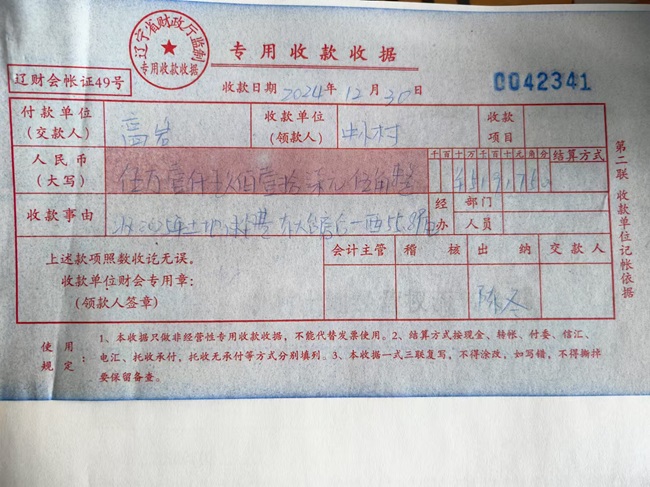 辽宁省财政厅监制
专用收款收据
专用收款收据
辽财会帐证49号
收款日期 2024年 12月 30日
0042341
付款单位
(交款人)
高岩
收款单位
(领款人)
村
收款
项目
人民币
(大写)
伍万壹仟 佰壹拾 元伍角整
千百十万千百十元角分
结算方式
收款事由
2025年土地
经办
部门
人员
上述款项照数收讫无误。
收款单位财会专用章:
(领款人签章)
会计主管
稽核
出纳
交款人
陈冬
第二联 收款单位记帐依据
使用规定:
1、本收据只做非经营性专用收款收据,不能代替发票使用。2、结算方式按现金、转帐、付委、信汇、
电汇、托收承付,托收无承付等方式分别填列。3、本收据一式三联复写,不得涂改,如写错,不得撕掉
要保留备查。